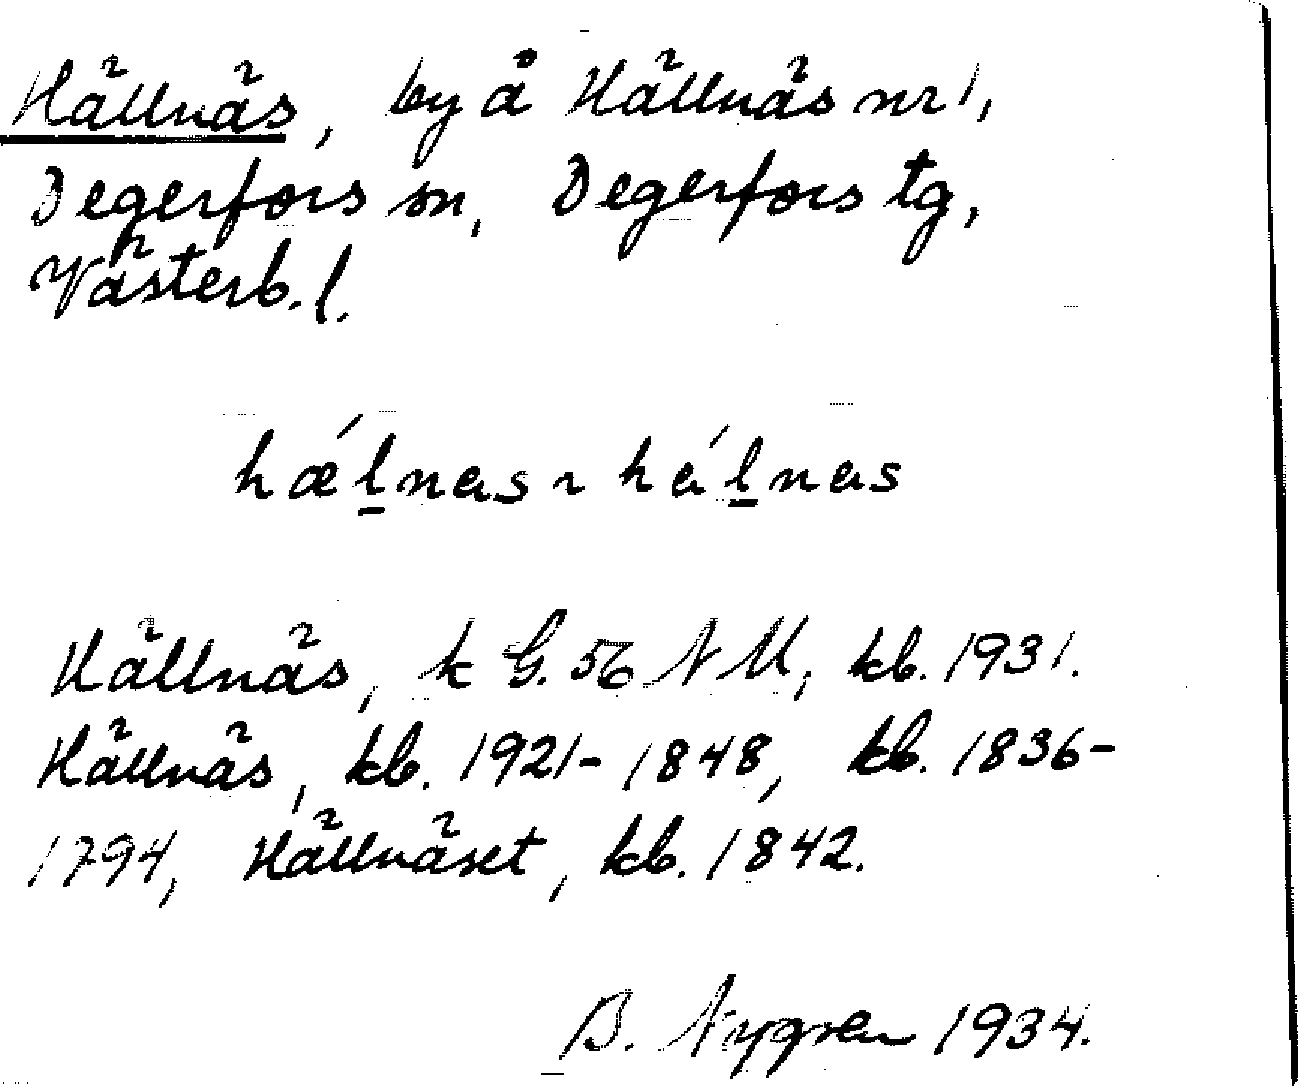 Hällnäs, by å Hällnäs nr 1,
Degerfors sn, Degerfors tg,
Västerb. l.
hǽl̠nas ~ há̠l̠nas
Hällnäs, k G. 56 N M, kb. 1931.
Hällnäs, kb. 1921-1848, kb. 1836-
1794, Hällnäset, kb. 1842.
B. Nygren 1934.